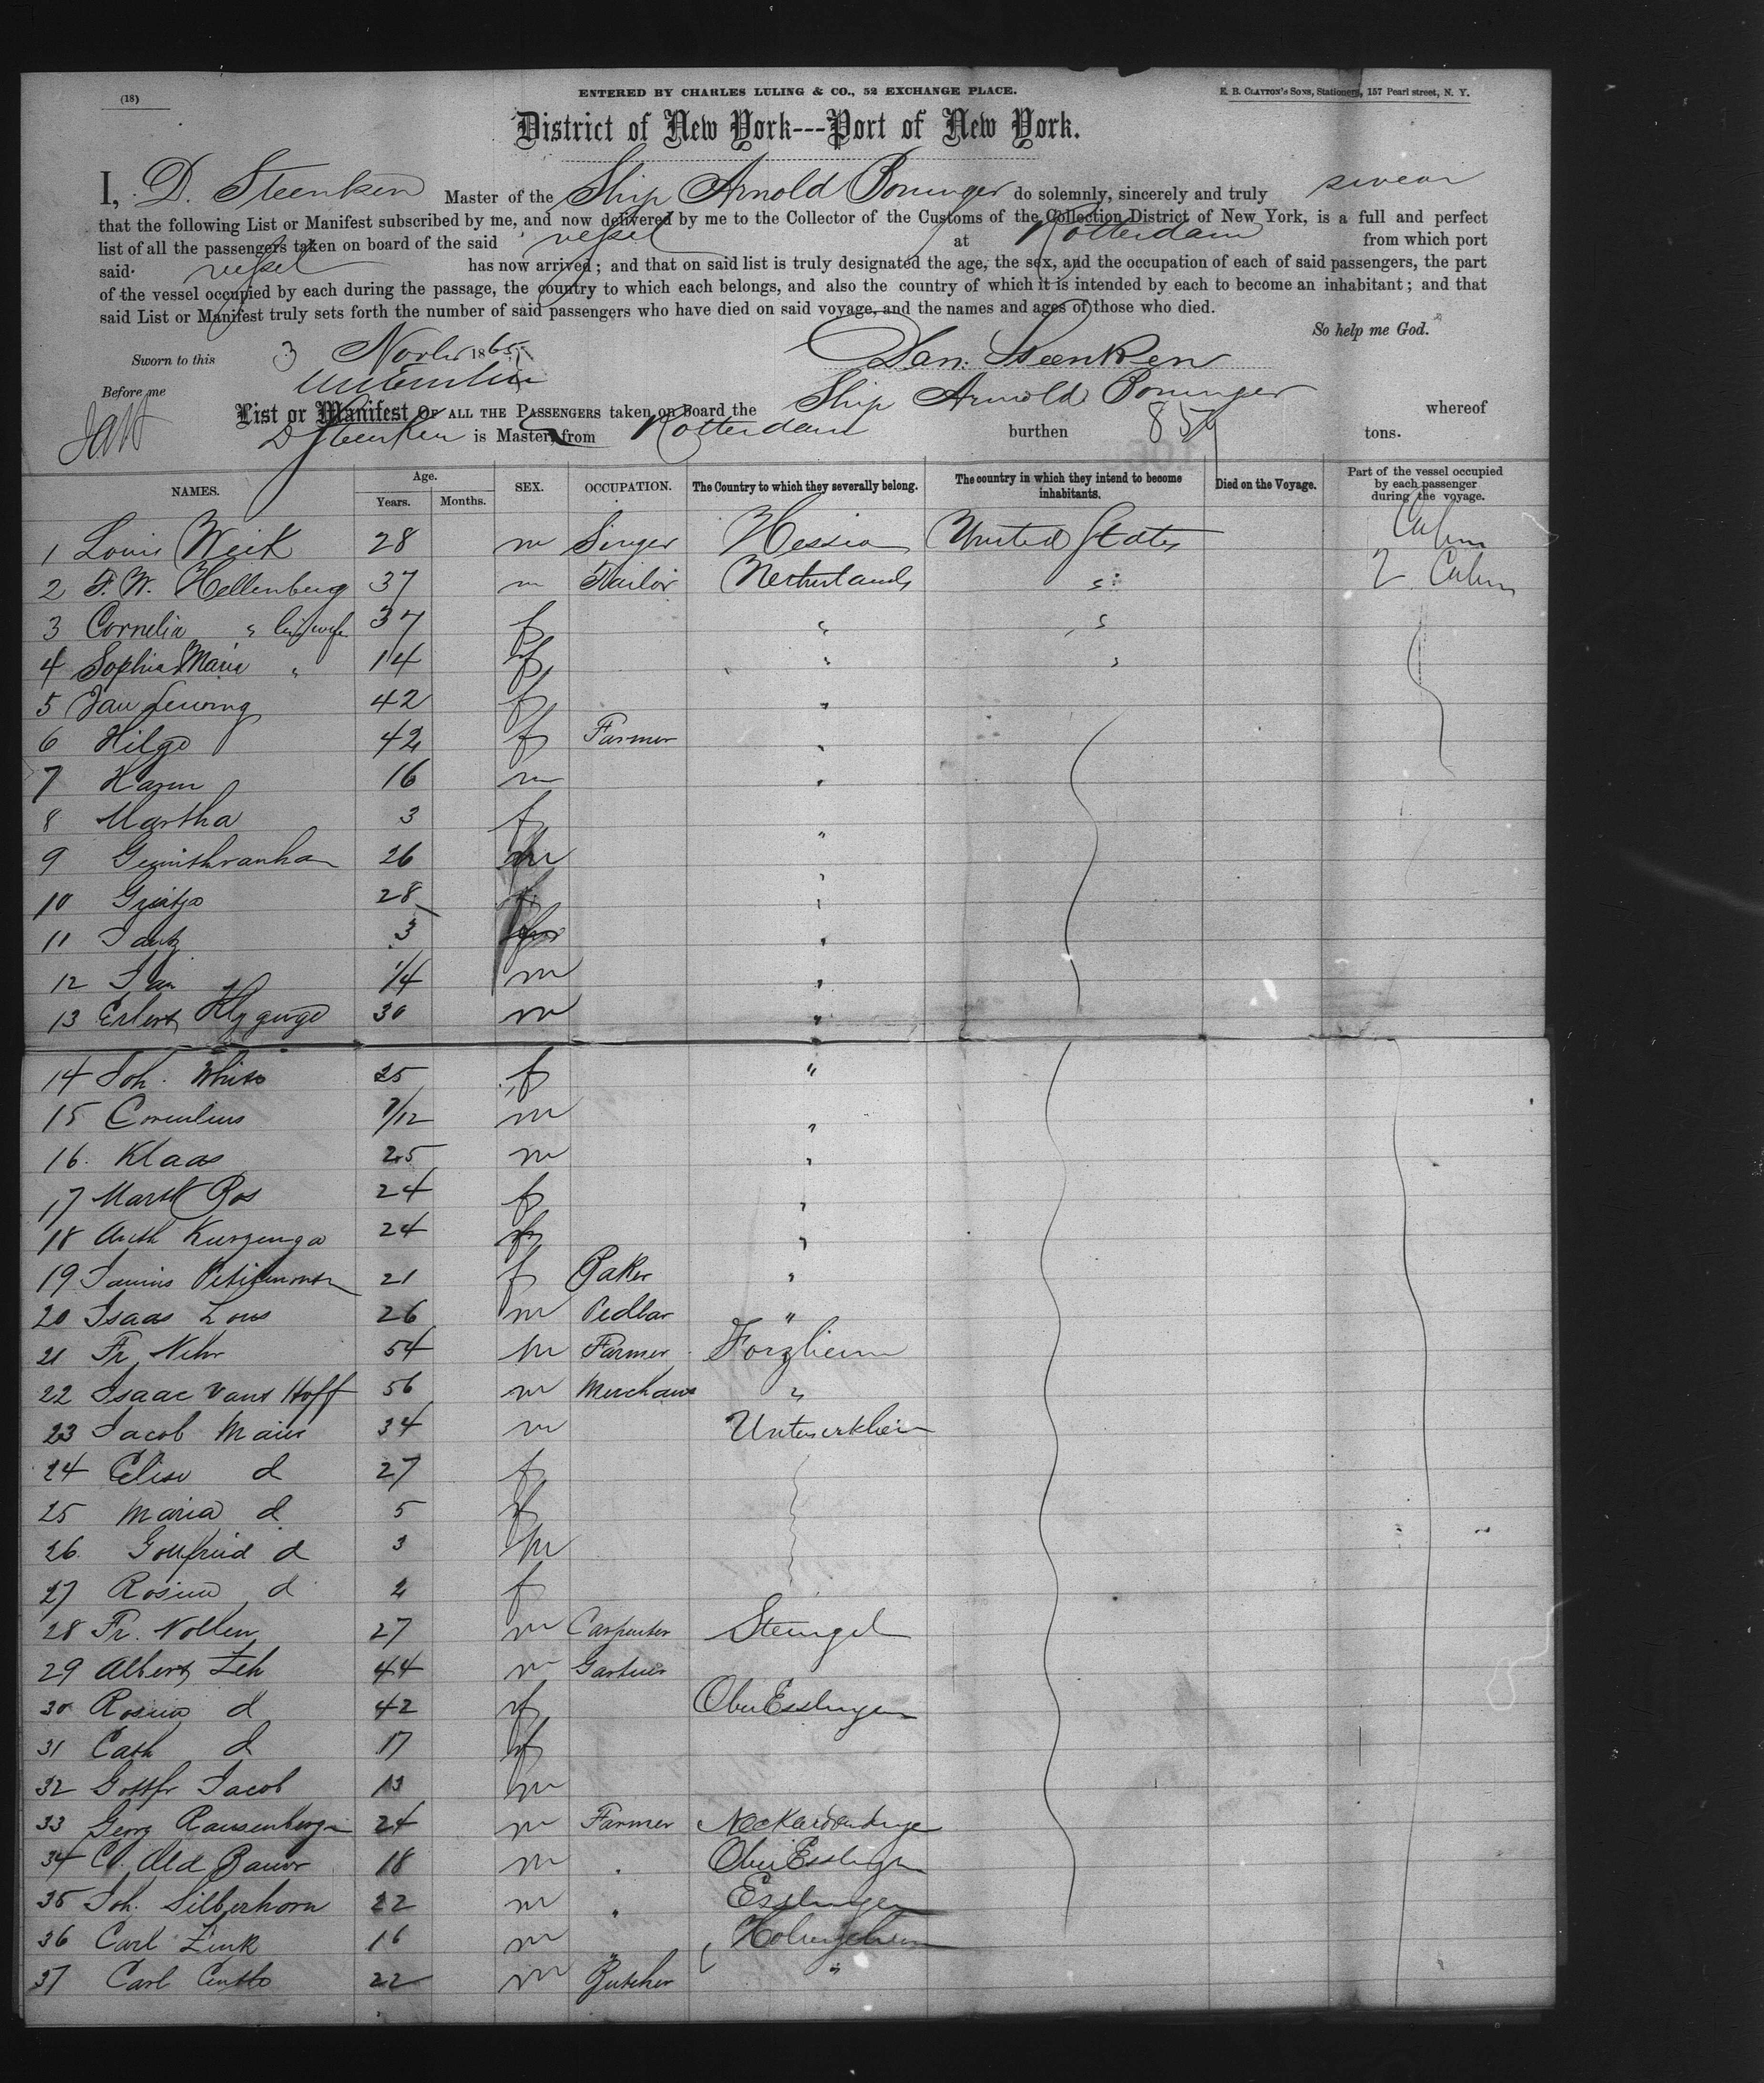 (18)
ENTERED BY CHARLES LULING & CO., 52 EXCHANGE PLACE.
E. B. CLAYTON'S SONS, Stationers, 157 Pearl street, N. Y.
District of New York---Port of New York.
I, D. Steenken Master of the Ship Arnold Boninger do solemnly, sincerely and truly swear
that the following List or Manifest subscribed by me, and now delivered by me to the Collector of the Customs of the Collection District of New York, is a full and perfect
list of all the passengers taken on board of the said vessel at Rotterdam from which port
said vessel has now arrived; and that on said list is truly designated the age, the sex, and the occupation of each of said passengers, the part
of the vessel occupied by each during the passage, the country to which each belongs, and also the country of which it is intended by each to become an inhabitant; and that
said List or Manifest truly sets forth the number of said passengers who have died on said voyage, and the names and ages of those who died.
So help me God.
Sworn to this 3 Novbr 1865
Dan. Steenken
Before me
List or Manifest OF ALL THE PASSENGERS taken on Board the Ship Arnold Boninger whereof
D Steenken is Master, from Rotterdam burthen 857 tons.
NAMES. Age. Years. Months. SEX. OCCUPATION. The Country to which they severally belong. The country in which they intend to become inhabitants. Died on the Voyage. Part of the vessel occupied by each passenger during the voyage.
1 Louis Weik 28 m Singer Hessia United States Cabin
2 F. W. Hellenberg 37 m Tailor Netherlands " 2 Cabin
3 Cornelia " his wife 37 f " "
4 Sophia Maria " 14 f " "
5 Jan 42 f "
6 Hilge 42 f Farmer "
7 Harm 16 m "
8 Martha 3 f "
9 26 m "
10 28 f "
11 3 "
12 Jan 1/4 m "
13 Erbert 30 m "
14 Joh. 25 f "
15 Cornelius 7/12 m "
16. Klaas 25 m "
17 Marth Bos 24 f "
18 Anth Kurzenga 24 f "
19 21 f Baker "
20 Isaas 26 m Pedlar "
21 Fr. Nehr 54 m Farmer Forzheim
22 Isaac vant Hoff 56 m Merchant "
23 Jacob Maier 34 m
24 Elise d 27 f
25 Maria d 5 f
26. Gottfried d 3 m
27 Rosina d 2 f
28 Fr. Nollen 27 m Carpenter
29 Albert Zeh 44 m Gartner
30 Rosina d 42 f Ober Esslingen
31 Cath d 17 f
32 Gottfr Jacob 13 m
33 Georg Rausenberger 24 m Farmer
34 18 m " Ober Esslingen
35 Joh. Silberhorn 22 m " Esslingen
36 Carl Zink 16 m
37 Carl 22 m Butcher "